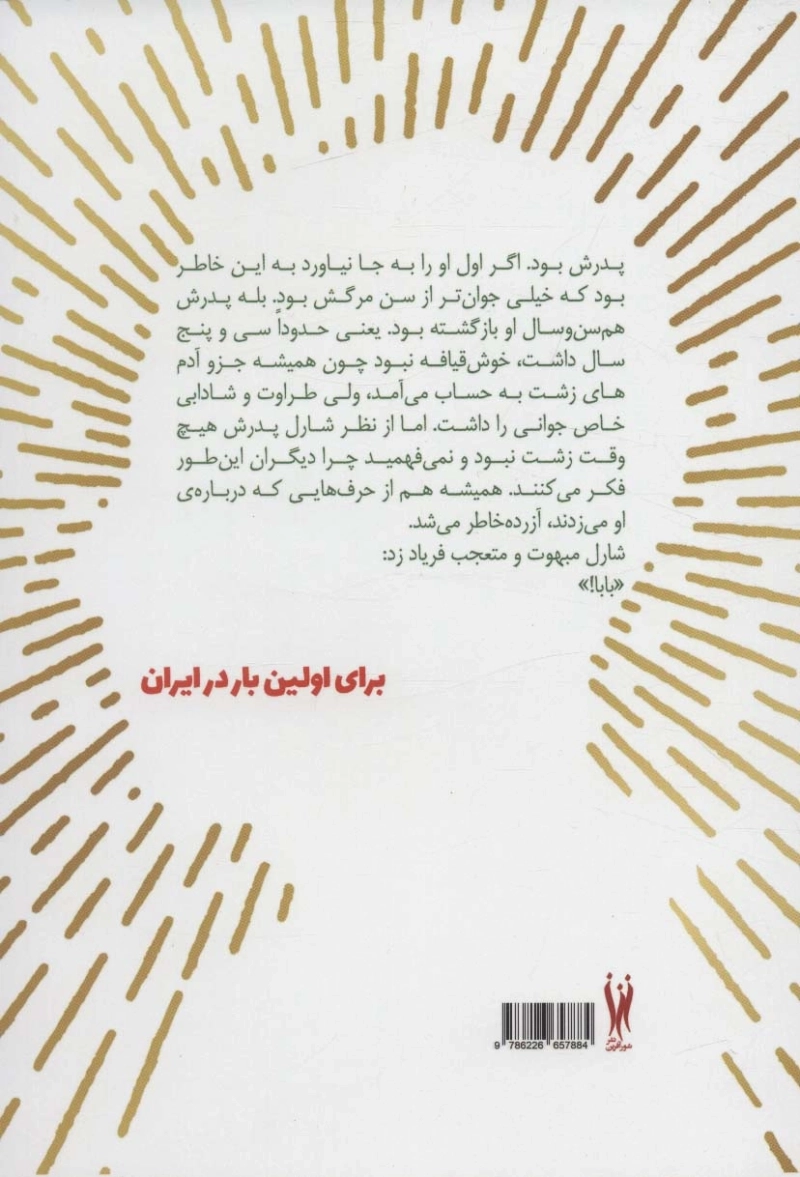 پدرش بود. اگر اول او را به جا نیاورد به این خاطر
بود که خیلی جوان‌تر از سن مرگش بود. بله پدرش
هم‌سن‌وسال او بازگشته بود. یعنی حدوداً سی و پنج
سال داشت، خوش‌قیافه نبود چون همیشه جزو آدم
های زشت به حساب می‌آمد، ولی طراوت و شادابی
خاص جوانی را داشت. اما از نظر شارل پدرش هیچ
وقت زشت نبود و نمی‌فهمید چرا دیگران این‌طور
فکر می‌کنند. همیشه هم از حرف‌هایی که درباره‌ی
او می‌زدند، آزرده‌خاطر می‌شد.
شارل مبهوت و متعجب فریاد زد:
«بابا!»
برای اولین بار در ایران
9 786226 657884
نشر
شورآفرین